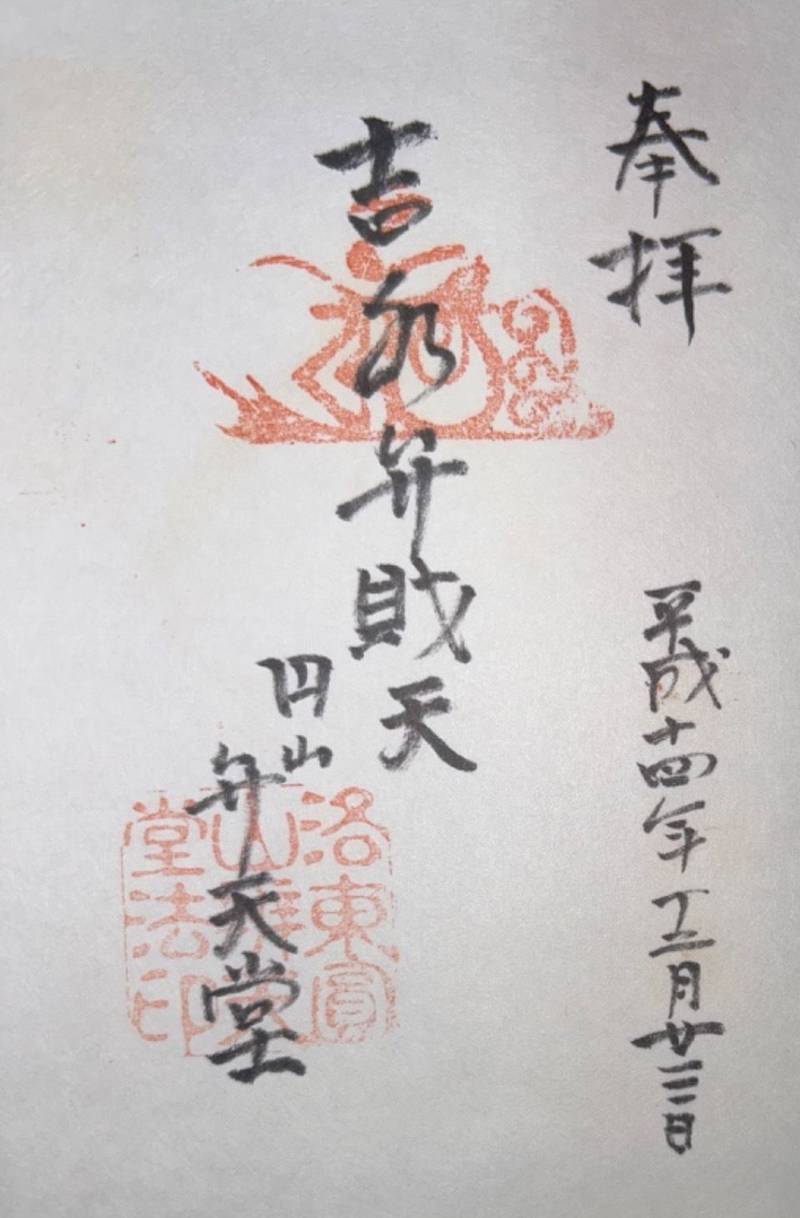 奉拝
平成十四年十二月廿三日
吉水弁財天
円山
弁天堂
洛東圓
堂法印